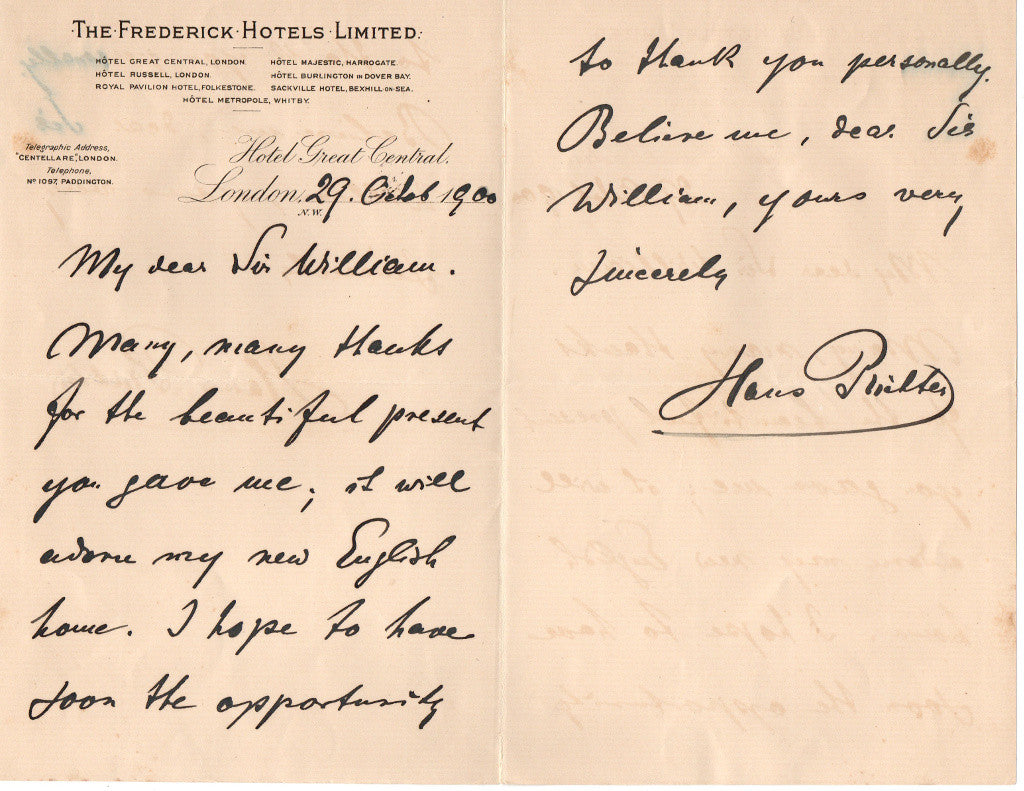 THE·FREDERICK·HOTELS·LIMITED.
HÔTEL GREAT CENTRAL, LONDON. HÔTEL MAJESTIC, HARROGATE.
HÔTEL RUSSELL, LONDON. HÔTEL BURLINGTON IN DOVER BAY.
ROYAL PAVILION HOTEL, FOLKESTONE. SACKVILLE HOTEL, BEXHILL-ON-SEA.
HÔTEL METROPOLE, WHITBY.
Telegraphic Address,
"CENTELLARE", LONDON.
Telephone,
Nº 1097, PADDINGTON.
Hotel Great Central.
London, 29. Octob 1900
N.W.
My dear Sir William.
Many, many thanks
for the beautiful present
you gave me; it will
adorn my new English
home. I hope to have
soon the opportunity
to thank you personally.
Believe me, dear Sir
William, yours very
sincerely
Hans Richter